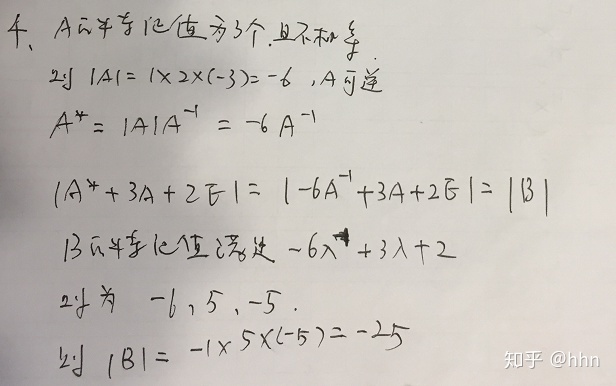 4、A的特征值为3个,且不相等.
则 |A| = 1×2×(-3) = -6 , A可逆
A* = |A|A⁻¹ = -6A⁻¹
|A* + 3A + 2E| = |-6A⁻¹ + 3A + 2E| = |B|
B的特征值满足 -6λ⁻¹ + 3λ + 2
则为 -6, 5, -5.
则 |B| = -1 × 5 × (-5) = -25
知乎 @hhn